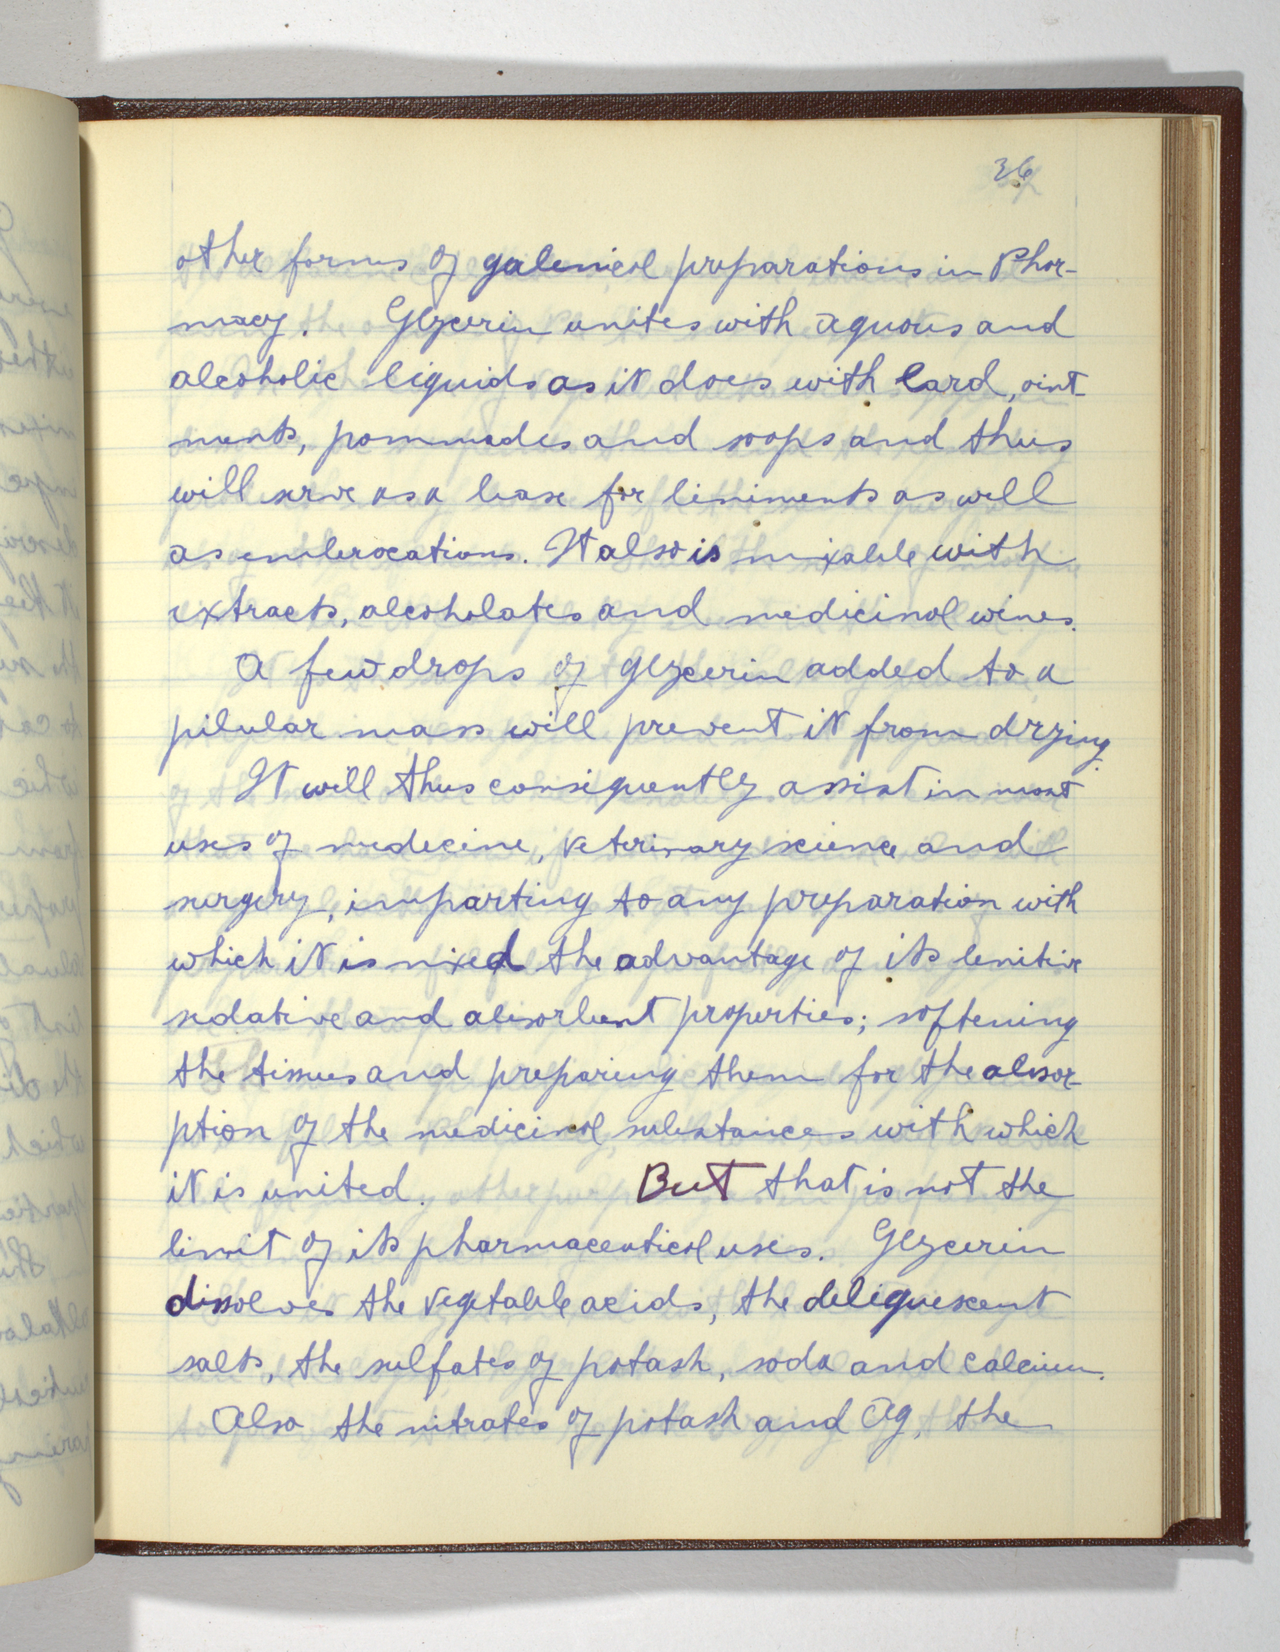 36
other forms of galenical preparations in Phar-
macy. Glycerin unites with aquous and
alcoholic liquids as it does with lard, oint-
ments, pommades and soaps and thus
will serve as a base for liniments as well
as embrocations. It also is mixable with
extracts, alcoholates and medicinal wines.
A few drops of glycerin added to a
pilular mass will prevent it from drying.
It will thus consequently assist in most
uses of medecine, veterinary science and
surgery, imparting to any preparation with
which it is mixed the advantage of its lenitive
sedative and absorbent properties; softening
the tissues and preparing them for the absor-
ption of the medicinal substances with which
it is united. But that is not the
limit of its pharmaceutical uses. Glycerin
dissolves the vegetable acids, the deliquescent
salts, the sulfates of potash, soda and calcium.
Also the nitrates of potash and Ag, the